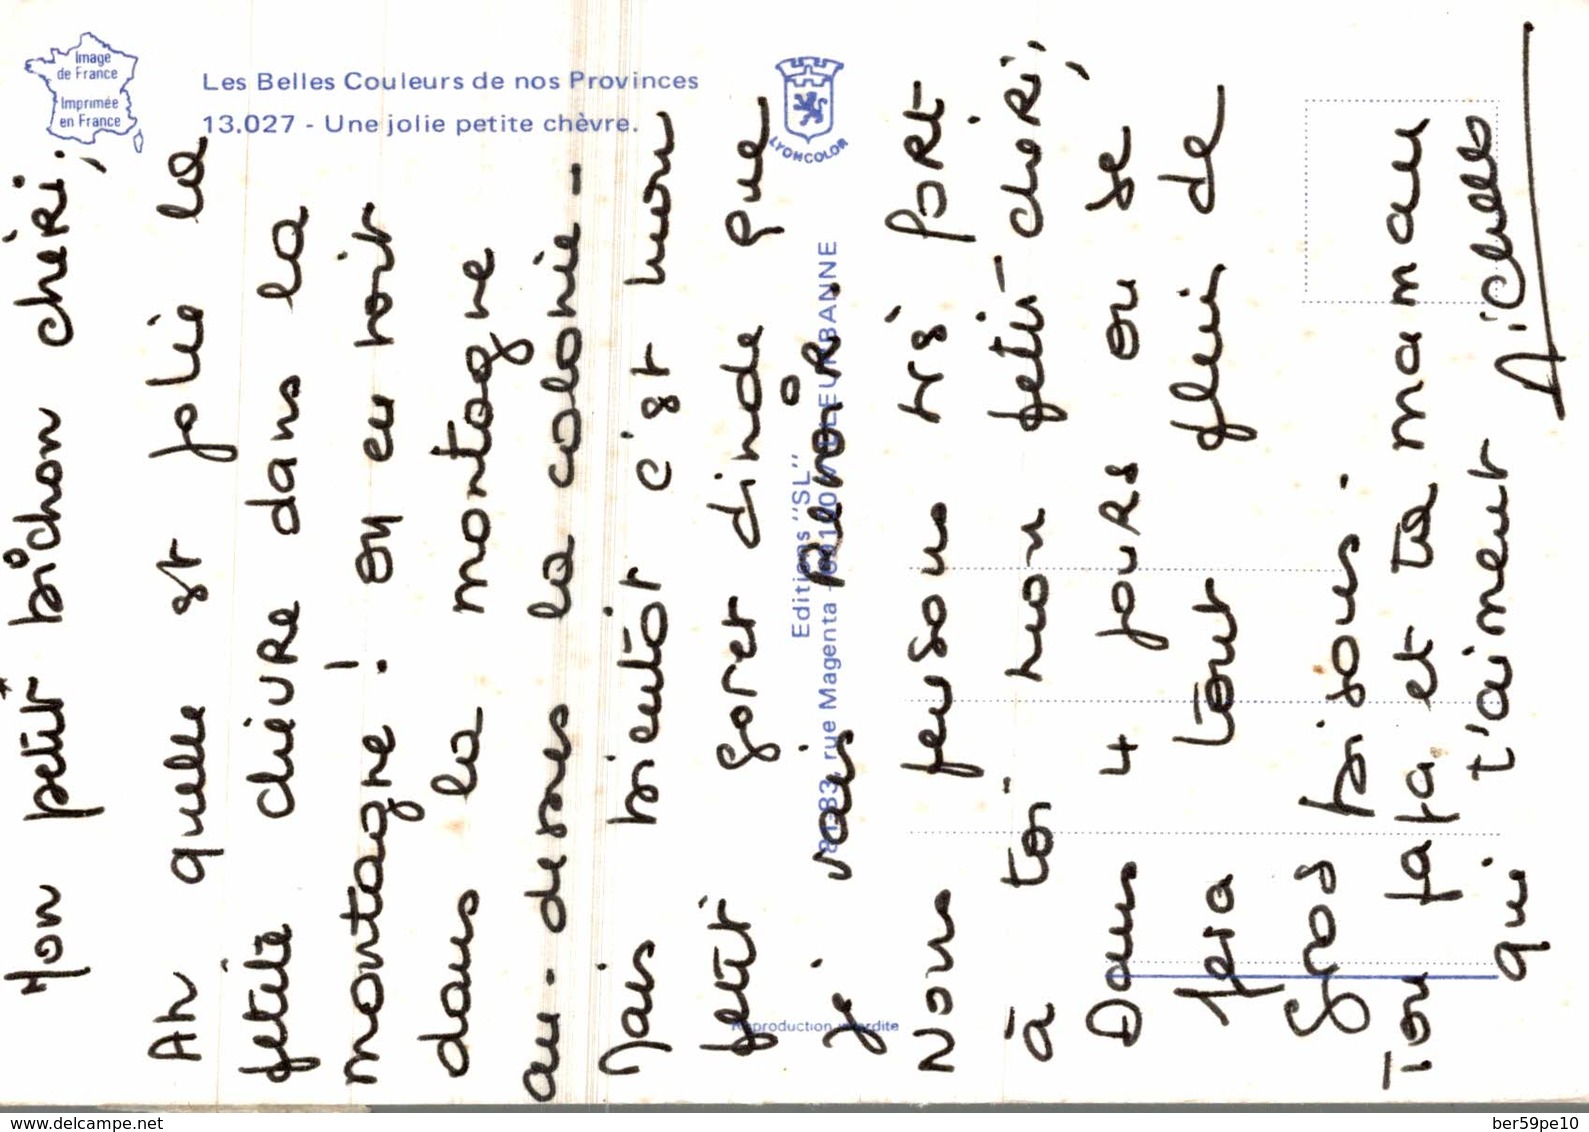 Image
de France
Imprimée
en France
Les Belles Couleurs de nos Provinces
13.027 - Une jolie petite chèvre.
LYONCOLOR
Editions "SL"
81-83, rue Magenta - 69100 VILLEURBANNE
Reproduction interdite
Mon petit bichon chéri,
Ah quelle est jolie la
petite chèvre dans la
montagne ! on en voit
dans la montagne
au-dessus la colonie -
Mais bientôt c'est mon
petit goret dinde que
je vais revoir.
Nous pensons très fort
à toi mon petit-chéri,
Dans 4 jours on se
fera tout plein de
Gros bisous.
Ton papa et ta maman
qui t'aiment
www.delcampe.net
ber59pe10